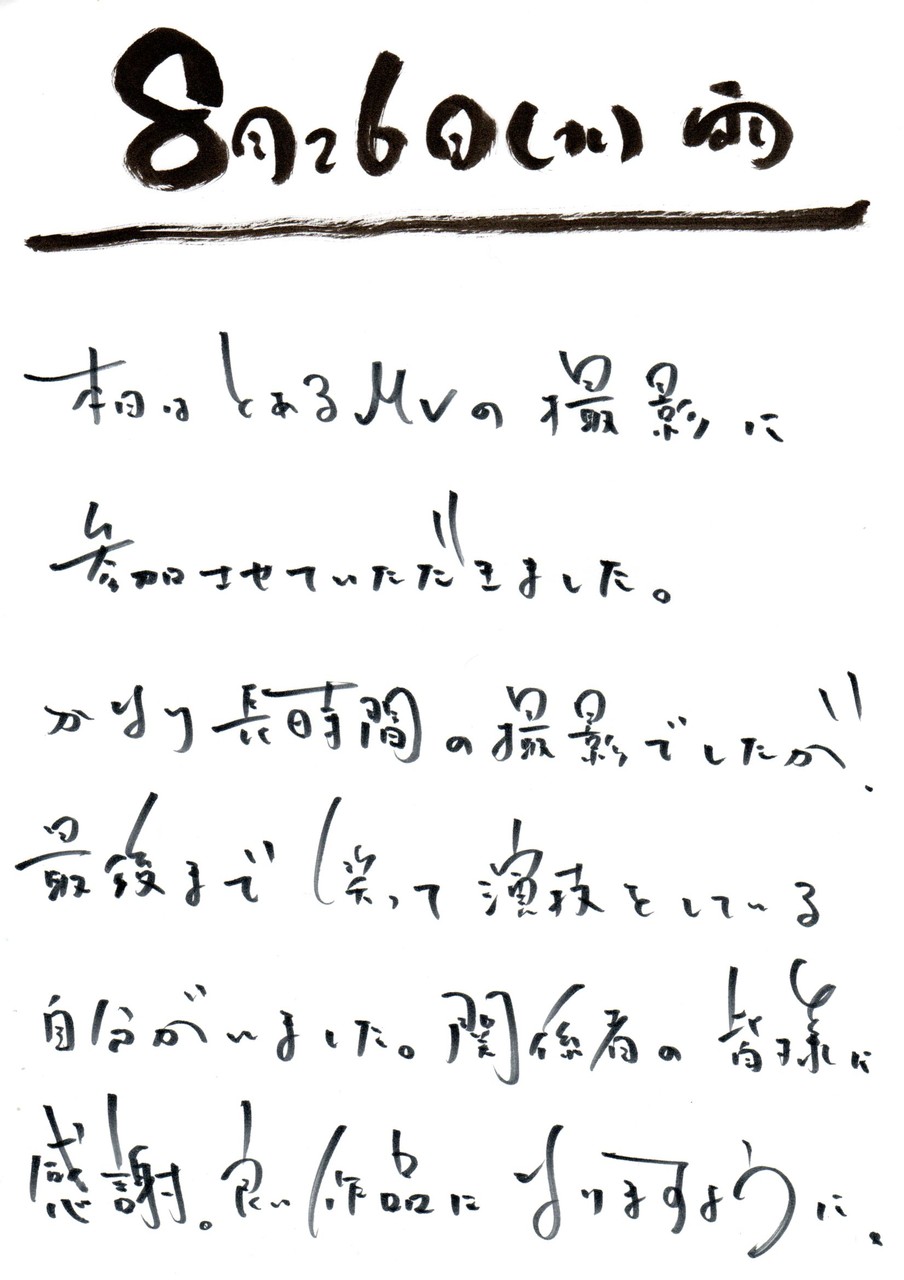 8月26日(水) 雨
本日はとあるMVの撮影に
参加させていただきました。
かなり長時間の撮影でしたが、
最後まで笑って演技をしている
自分がいました。関係者の皆様に
感謝。良い作品になりますように、